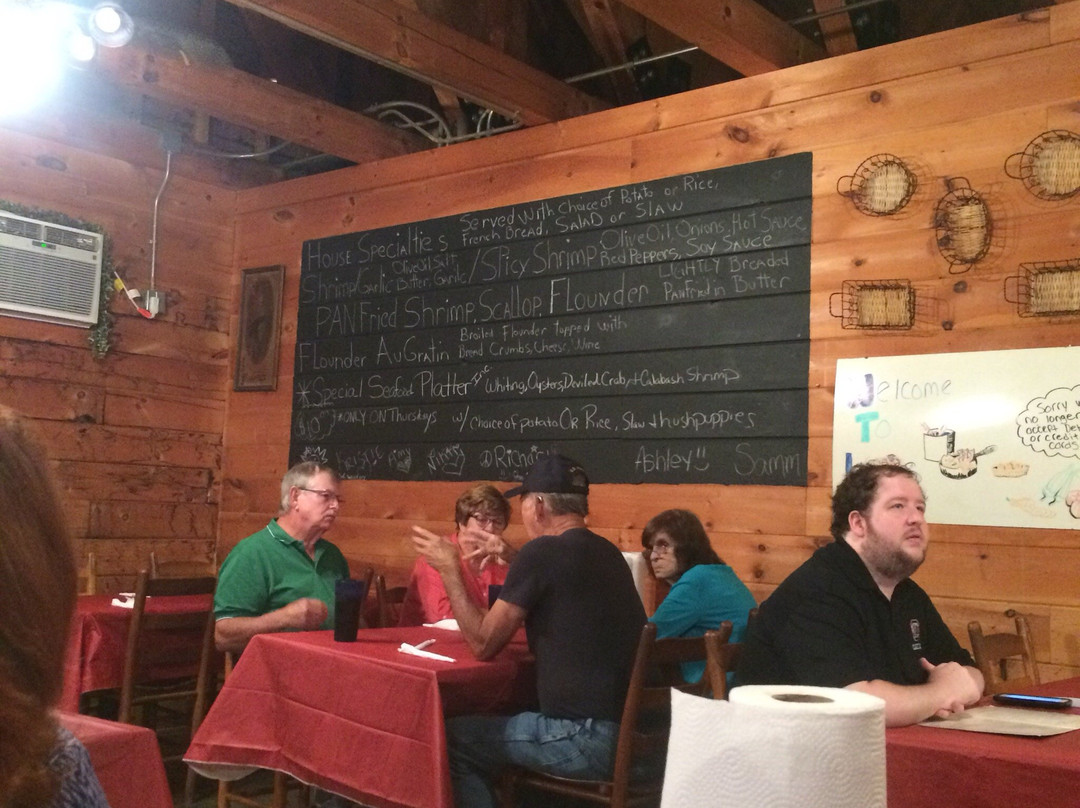 House Specialties Served with choice of Potato or Rice,
French Bread, Salad or Slaw
Shrimp/Garlic Butter, Garlic/Spicy Shrimp Olive Oil, Onions, Hot Sauce
Olive Oil, Salt, Red Peppers, Soy Sauce
PAN Fried Shrimp, Scallop, Flounder LIGHTLY Breaded
Panfried in Butter
Flounder AuGratin Broiled Flounder topped with
Bread Crumbs, Cheese, Wine
*Special Seafood Platter Whiting, Oysters, Deviled Crab, + Calabash Shrimp
ONLY ON Thursdays w/ choice of potato OR Rice, Slaw + hushpuppies
Amy Richard Ashley Samm
Welcome
To
Sorry
no longer
accept
or credit
cards